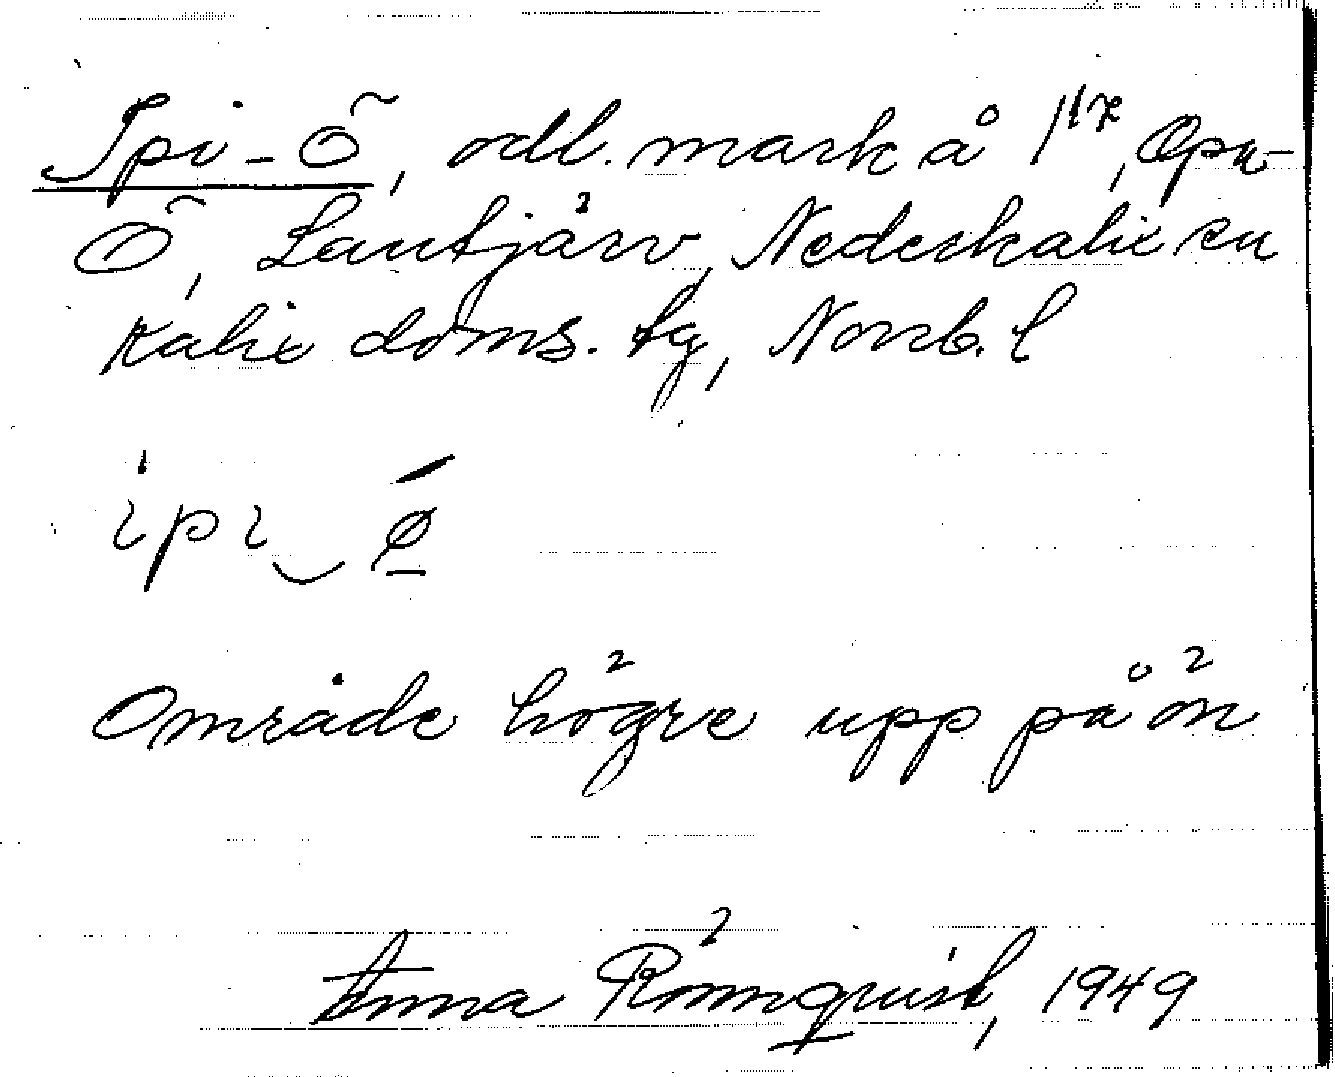 Ipi-Ö, odl. mark å 1¹⁷, Opu-
Ö, Lantjärv, Nederkalix sn
Kalix doms. tg, Norrb. l
ipi‿ø
Område högre upp på ön
Anna Rönnquist, 1949